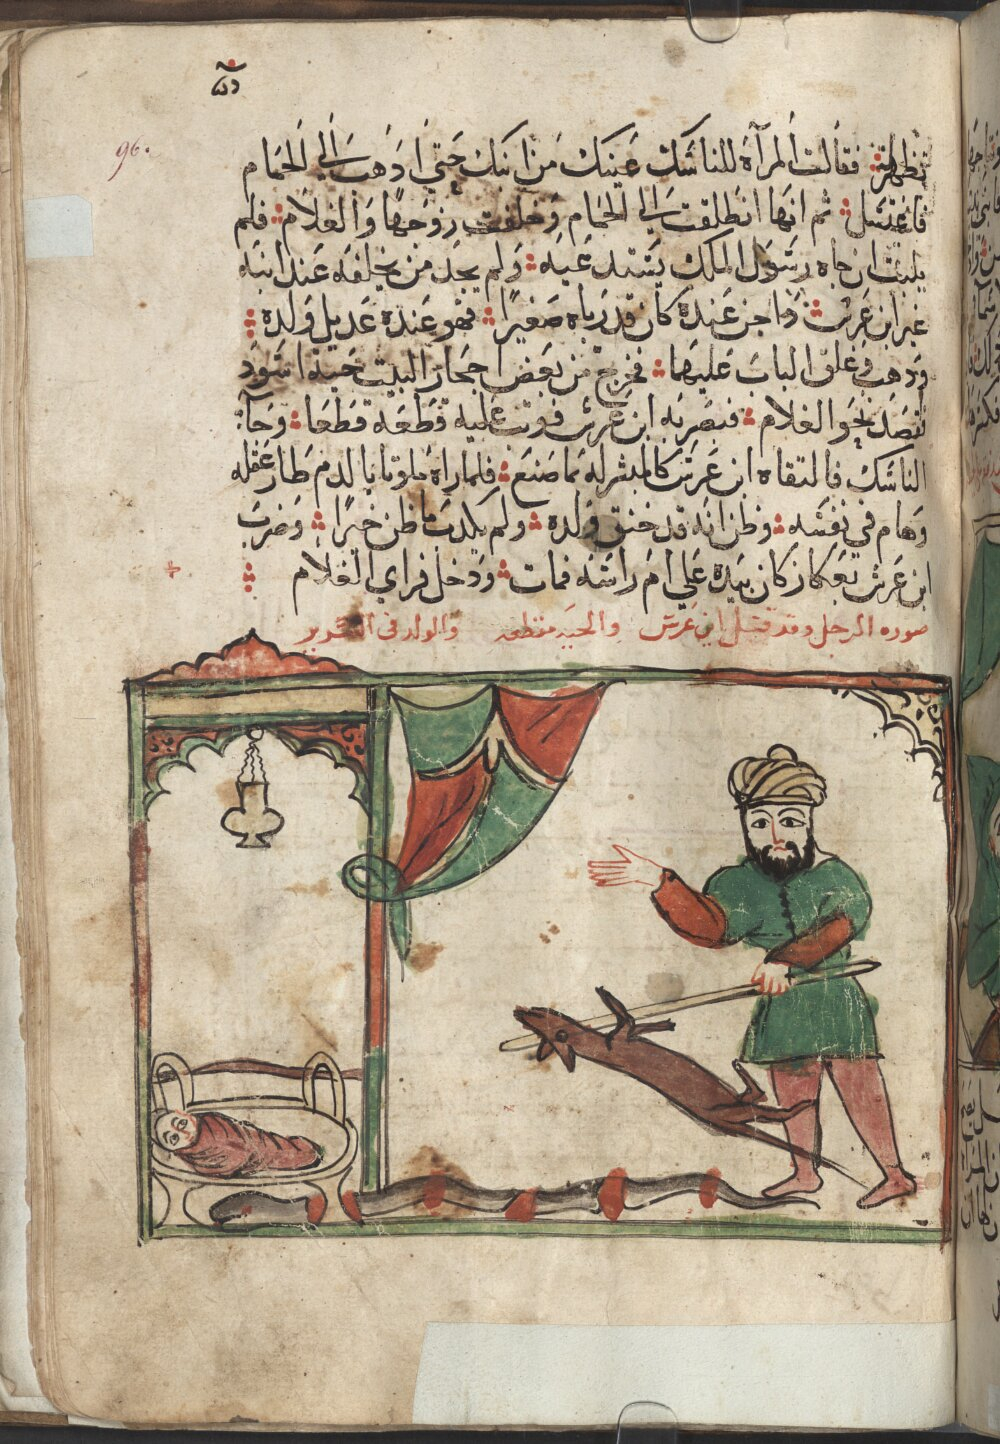 96.
تطهرت فقالت المرآة للناسك عينك من ابنك حتي اذهب الي الحمام
فاغتسل ثم انها انطلقت الي الحمام وخلفت زوجها والغلام فلم
يلبث ان جاه رسول الملك يستدعيه ولم يجد من يخلفه عند ابنه
غير ابن عرس داجن عنده كان قد رباه صغيرًا فهو عنده عديل ولده
وذهب وغلق الباب عليهما فخرج من بعض احجار البيت حية اسود
نقصد نحو الغلام فبصر به ابن عرس فوثب عليه فقطعه قطعا وجآ
الناسك فالتقاه ابن عرس كالمبشر له بما صنع فلما راه ملوثا بالدم طار عقله
وهام في نفسه وظن انه قد خنق ولده ولم يكدب ما ظن خبرًا وضرب
ابن عرس بعكاز كان بيده علي ام راسه فمات ودخل فراي الغلام
صوره الرجل وقد قتل ابن عرس والحيه مقطعه والولد في السرير